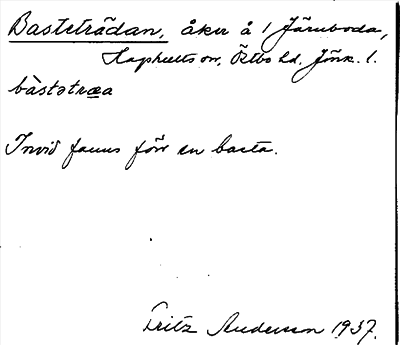 Basteträdan, åker å 1 Järnboda,
Hagshults sn, Östbo hd, Jönk. l.
bàstətræa
Invid fanns förr en basta.
Fritz Anderson 1937.